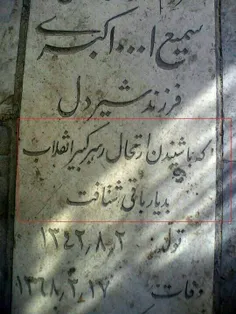 سمیع ا... اکبری
فرزند شیردل
که باشنیدن ارتحال رهبر کبیر انقلاب
بدیار باقی شتافت
تولد: ۱۳۴۲٫۸٫۲
وفات: ۱۳۶۸٫۳٫۱۷